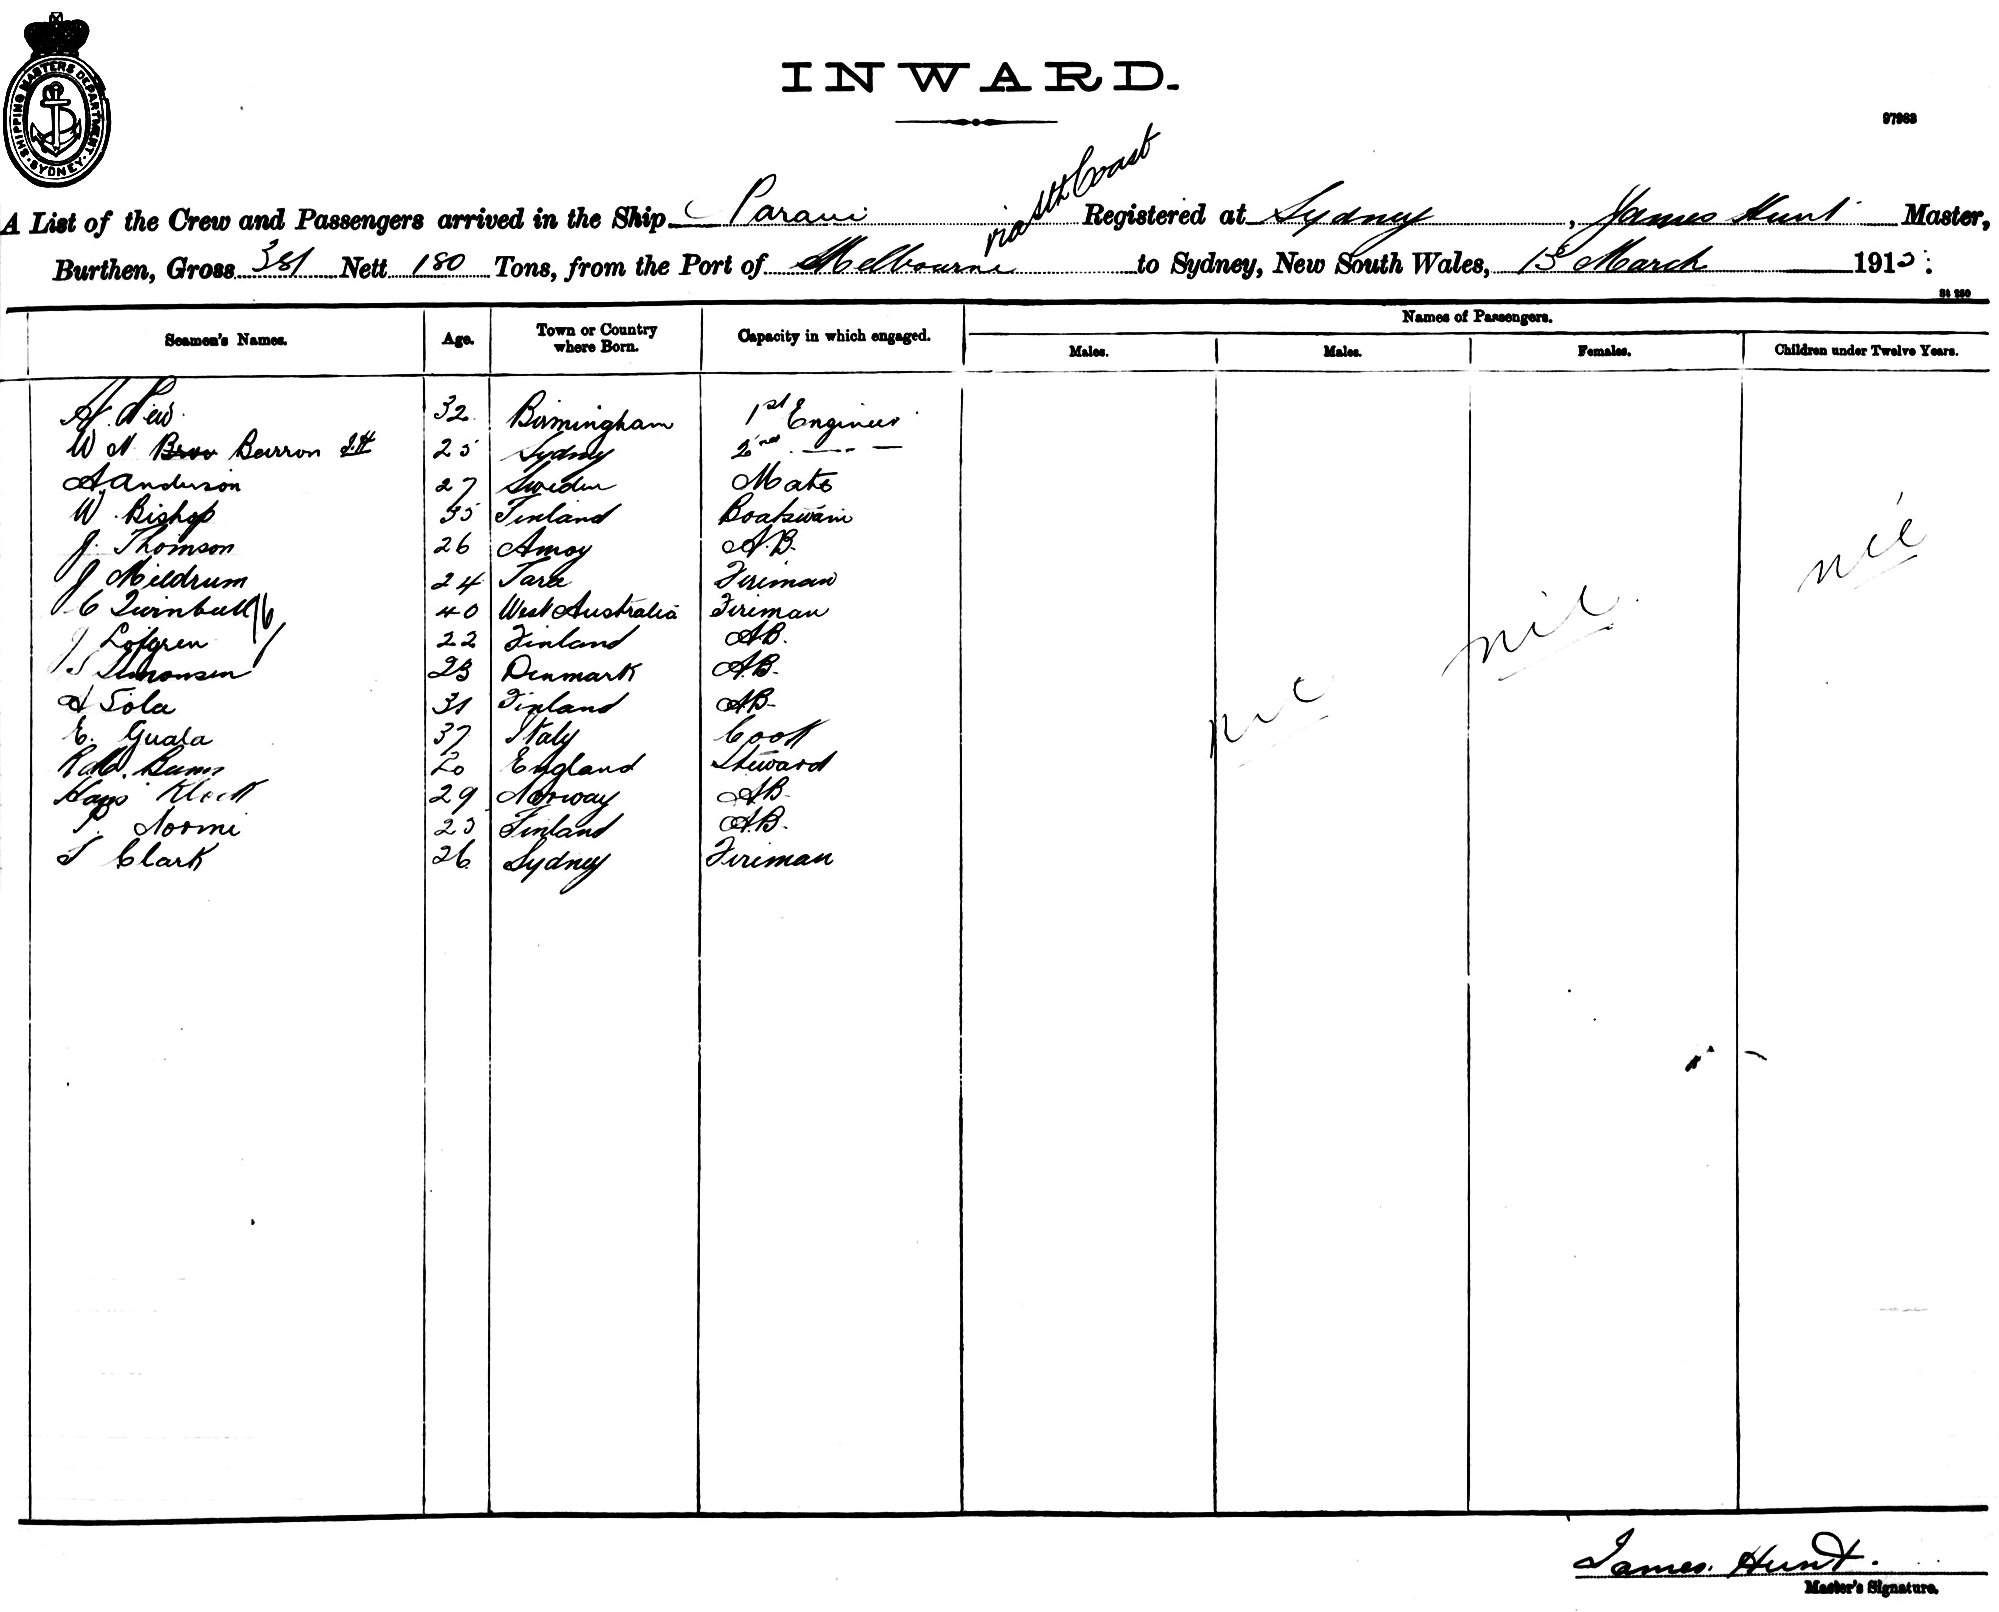 SHIPPING MASTERS DEPARTMENT SYDNEY
INWARD.
97963
via Sth Coast
A List of the Crew and Passengers arrived in the Ship Registered at Sydney, James Hunt Master,
Burthen, Gross 381 Nett 180 Tons, from the Port of Melbourne to Sydney, New South Wales, March 191
Names of Passengers.
Seamen's Names. Age. Town or Country where Born. Capacity in which engaged. Males. Males. Females. Children under Twelve Years.
32 Birmingham 1st Engineer
W Barron 25 Sydney 2nd
A Anderson 27 Sweden Mate
W. Bishop 35 Finland Boatswain
J. Thomson 26 Amoy A.B.
J Meldrum 24 Fireman
C Turnbull 40 West Australia Fireman
J Lofgren 22 Finland A.B.
S Simonsen 23 Denmark A.B.
A 31 Finland A.B.
E. Guala 37 Italy Cook
20 England Steward
Hans 29 Norway A.B.
Noomi 23 Finland A.B.
S Clark 26 Sydney Fireman
nil nil nil
James Hunt.
Master's Signature.